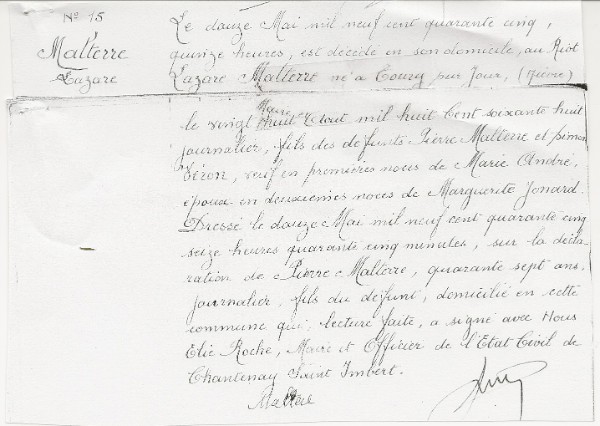 N° 15
Malterre
Lazare
Le douze Mai mil neuf cent quarante cinq,
quinze heures, est décédé en son domicile, au Riot
Lazare Malterre né à Toury sur Jour, (Nièvre)
le vingt huit Aout mil huit cent soixante huit
journalier, fils des défunts Pierre Malterre et Simone
Véron, veuf en premières noces de Marie André,
époux en deuxièmes noces de Marguerite Jonard.
Dressé le douze Mai mil neuf cent quarante cinq
seize heures quarante cinq minutes, sur la décla-
ration de Pierre Malterre, quarante sept ans,
journalier, fils du défunt, domicilié en cette
commune qui, lecture faite, a signé avec Nous
Elie Roche, Maire et Officier de l'Etat Civil de
Chantenay Saint Imbert.
Malterre